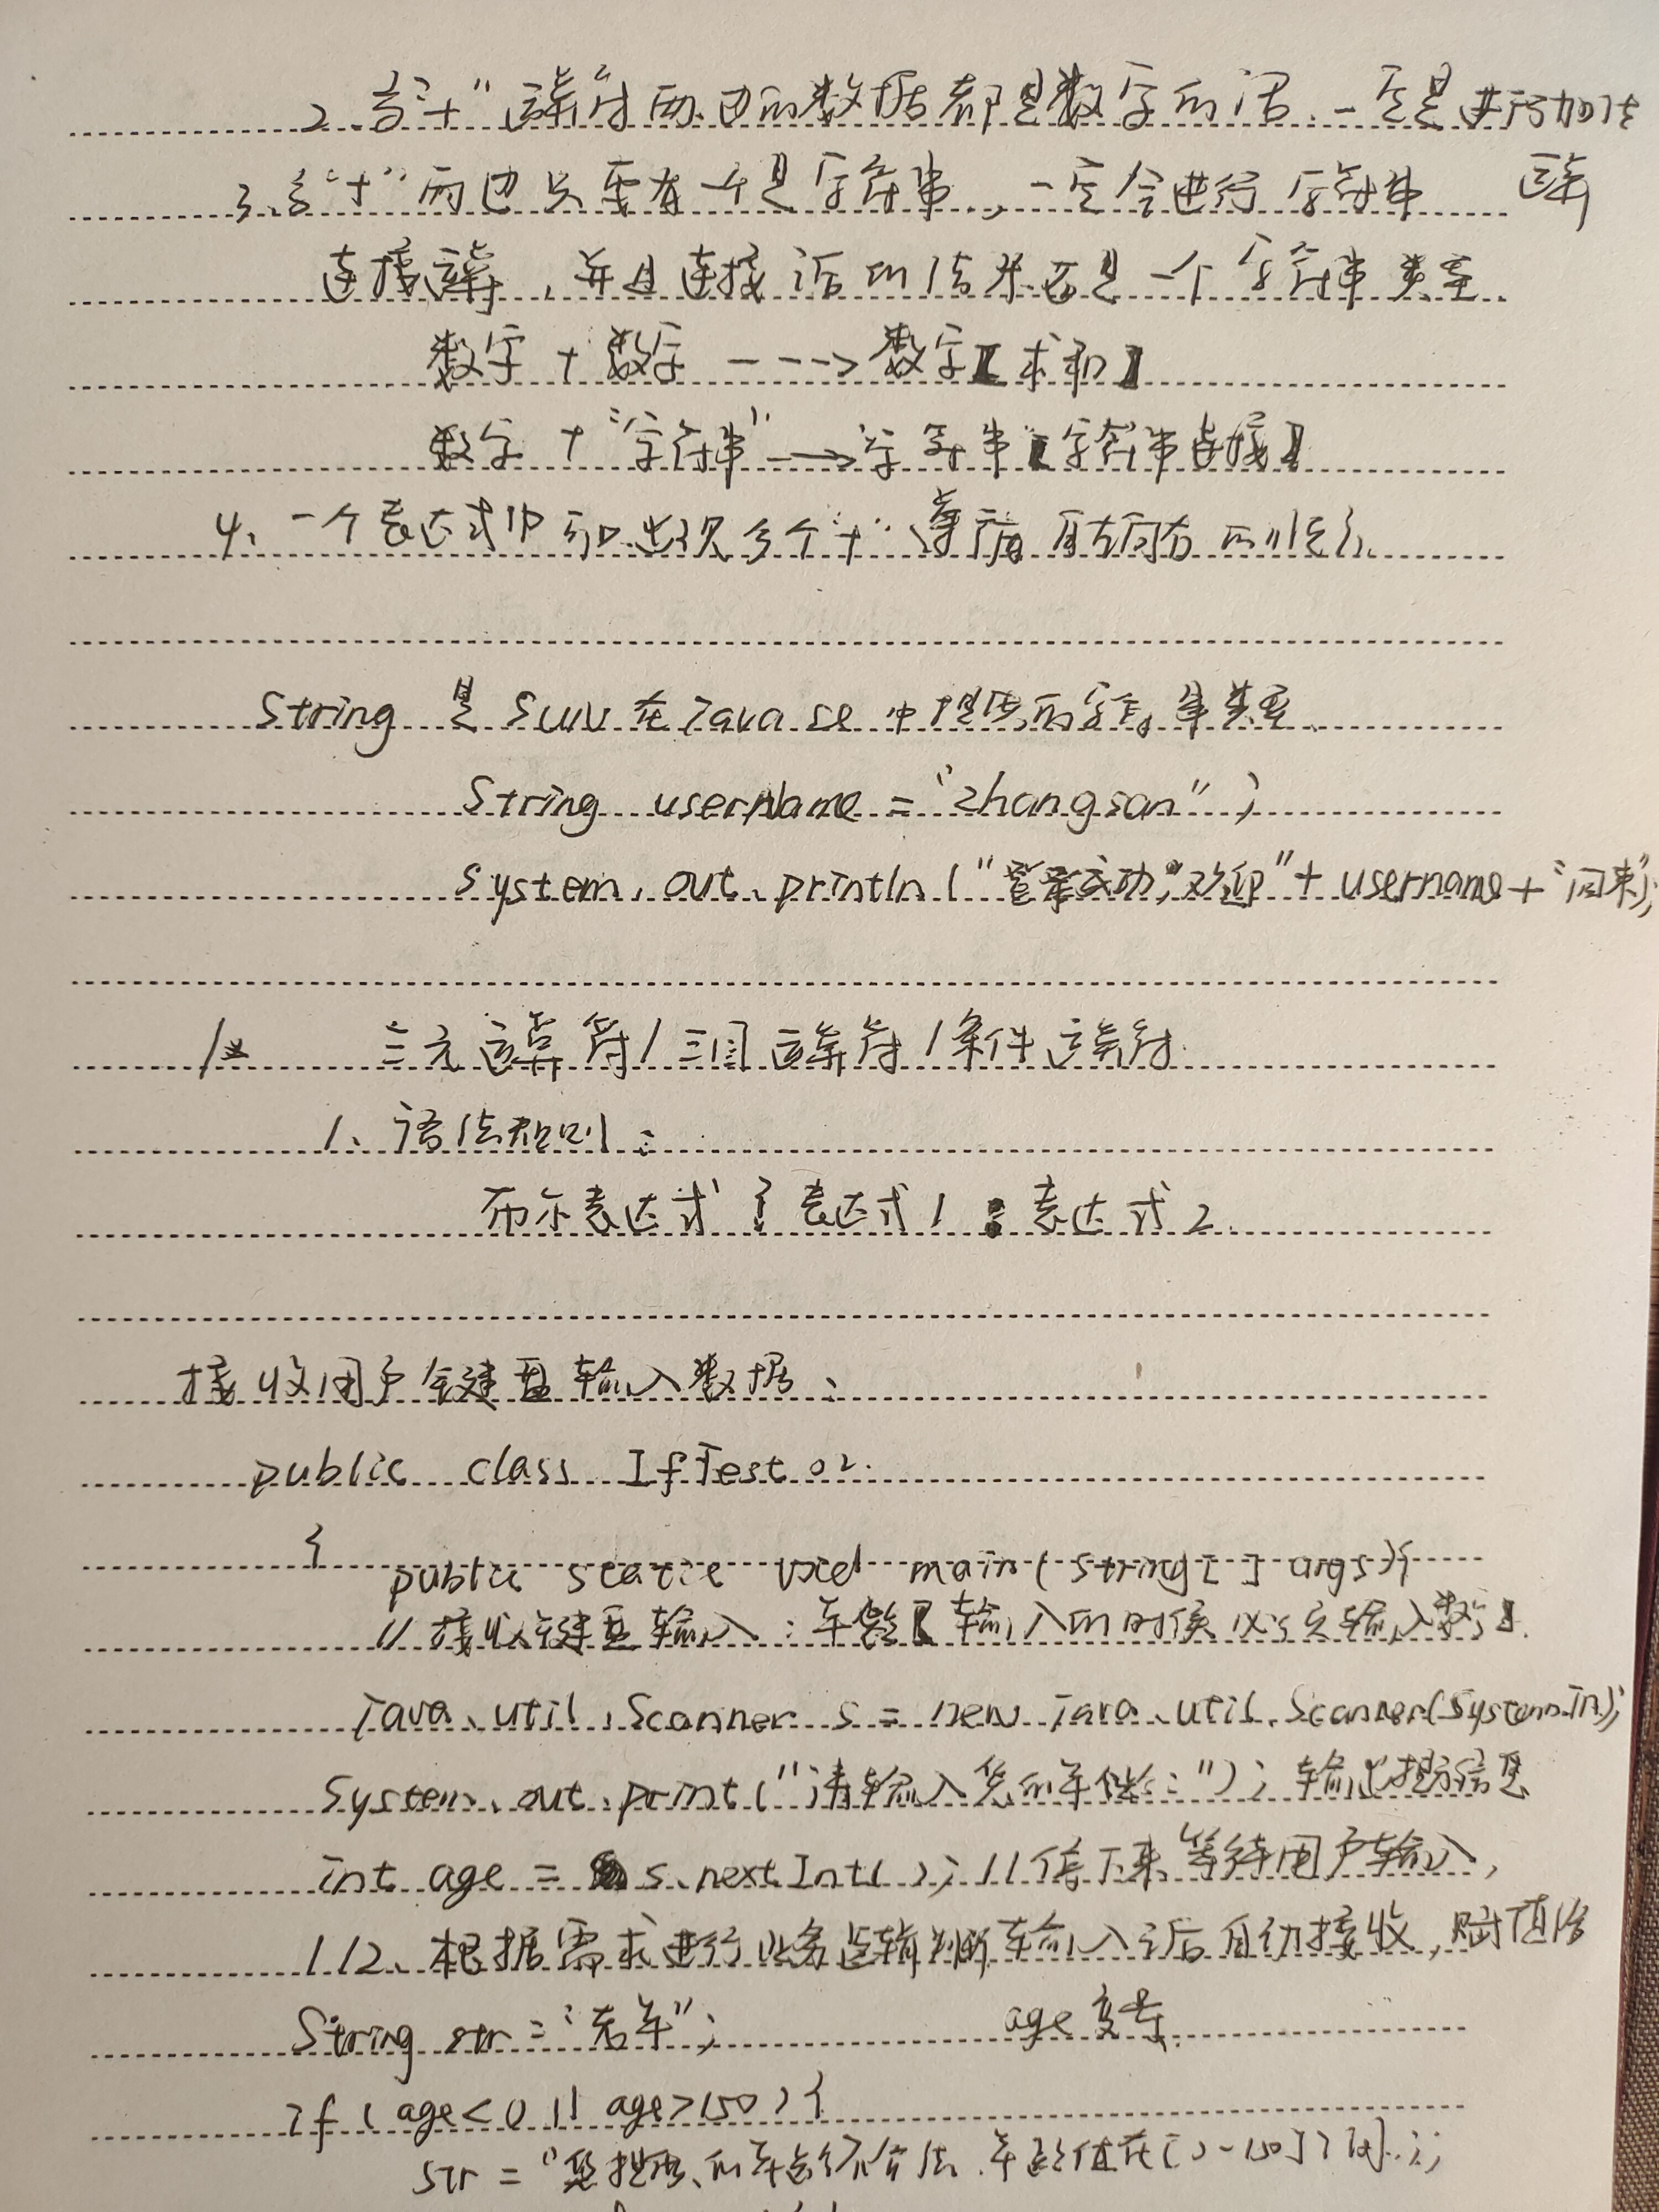 2、当"+"运算符两边的数据都是数字的话,一定是进行加法
运算
3、当"+"两边只要有一个是字符串,一定会进行字符串
连接运算,并且连接后的结果还是一个字符串类型.
数字 + 数字 ---> 数字【求和】
数字 + "字符串" ---> 字符串【字符串连接】
4、一个表达式中可以出现多个"+" 遵循自左向右的顺序.
String 是 SUN 在 Java se 中提供的字符串类型
String userName = "zhangsan";
System.out.println("登录成功,欢迎"+ username + "回来");
/* 三元运算符/三目运算符/条件运算符
1、语法规则:
布尔表达式 ? 表达式1 : 表达式2
接收用户键盘输入数据、
public class IfTest02
{
public static void main(String[] args){
// 接收键盘输入:年龄【输入的时候必须输入数字】.
java.util.Scanner s = new java.util.Scanner(System.in);
System.out.print("请输入您的年龄:"); 输出提示信息
int age = s.nextInt(); // 停下来等待用户输入,
//2、根据需求进行业务逻辑判断 输入之后自动接收,赋值给
String str = "老年"; age变量.
if ( age<0 || age>150 ){
str = "您提供的年龄不合法,年龄值在[0-150]之间.";